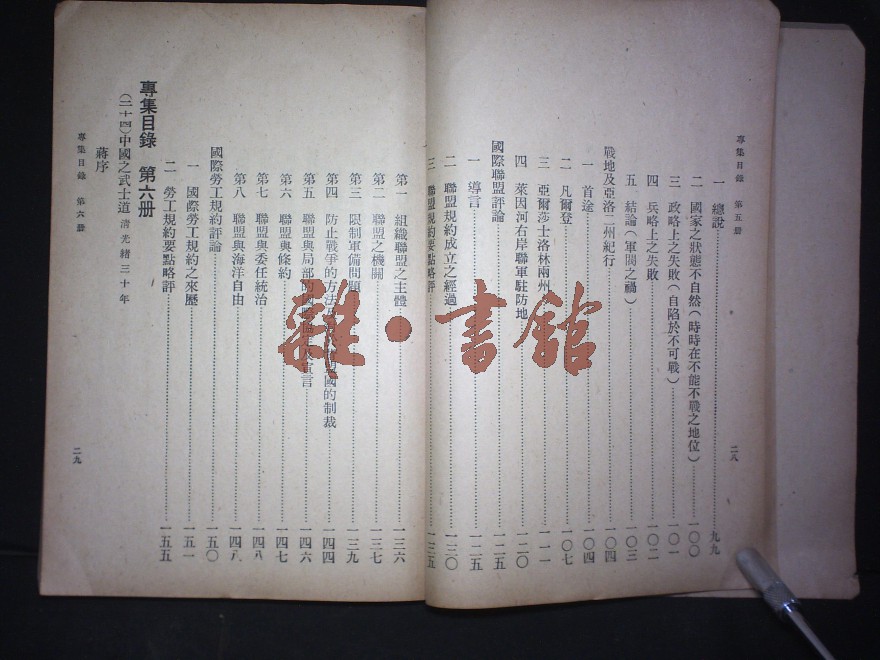 專集目錄 第五册
二八
一 總說……九九
二 國家之狀態不自然(時時在不能不戰之地位)……一〇〇
三 政略上之失敗(自陷於不可戰)……一〇一
四 兵略上之失敗……一〇二
五 結論(軍閥之禍)……一〇三
戰地及亞洛二州紀行……一〇四
一 首途……一〇四
二 凡爾登……一〇七
三 亞爾莎士洛林兩州……一一一
四 萊因河右岸聯軍駐防地……一二〇
國際聯盟評論……一二五
一 導言……一二五
二 聯盟規約成立之經過……一三〇
三 聯盟規約要點略評……一三五
第一 組織聯盟之主體……一三六
第二 聯盟之機關……一三七
第三 限制軍備問題……一三九
第四 防止戰爭的方法及 盟國的制裁……一四四
第五 聯盟與局部的國際協 及宣言……一四六
第六 聯盟與條約……一四七
第七 聯盟與委任統治……一四八
第八 聯盟與海洋自由……一四八
國際勞工規約評論……一五〇
一 國際勞工規約之來歷……一五一
二 勞工規約要點略評……一五五
專集目錄 第六册
(二十四)中國之武士道 清光緒三十年
蔣序
專集目錄 第六册
二九
雜·書館